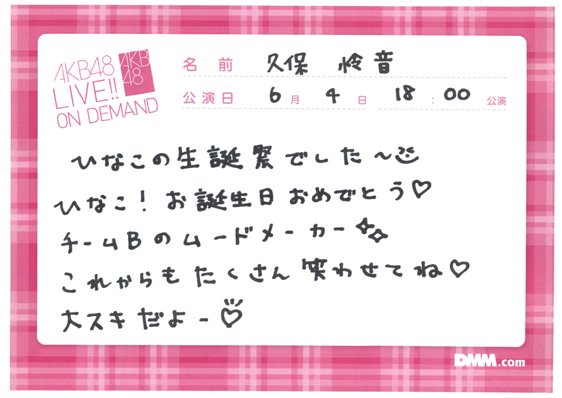 AKB48
LIVE!!
ON DEMAND
AKB
48
名前 久保 怜音
公演日 6月 4日 18:00 公演
ひなこの生誕祭でした〜
ひなこ！お誕生日おめでとう♡
チームBのムードメーカー
これからもたくさん笑わせてね♡
大スキだよー♡
DMM.com